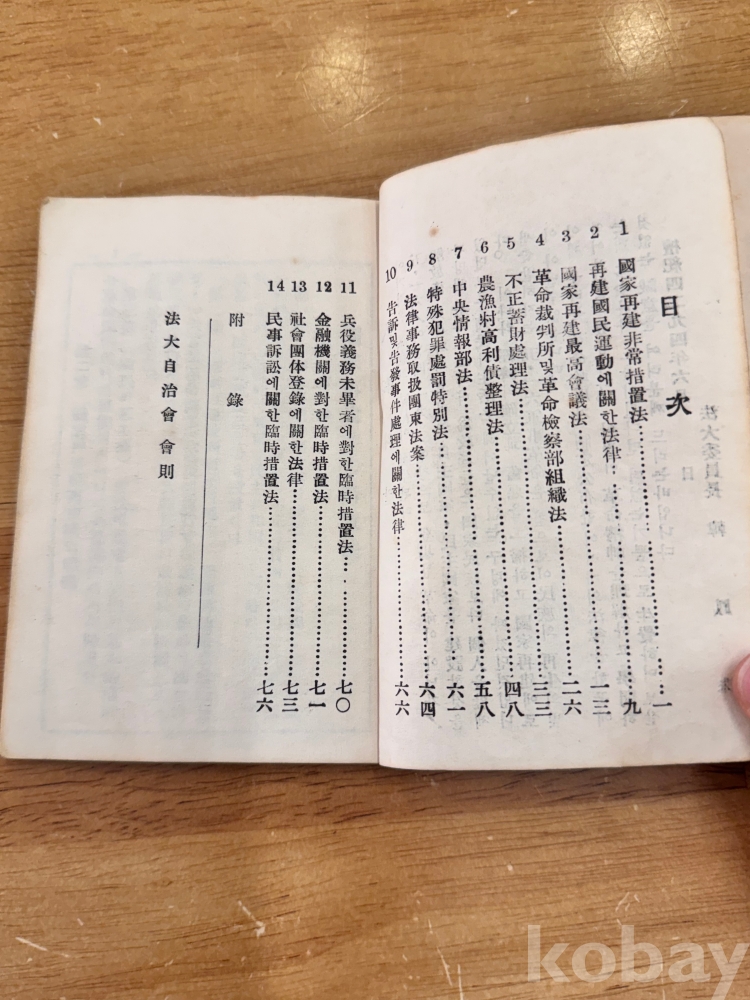 目次
1 國家再建非常措置法………一
2 再建國民運動에關한法律………九
3 國家再建最高會議法………一三
4 革命裁判所및革命檢察部組織法………二六
5 不正蓄財處理法………三三
6 農漁村高利債整理法………四八
7 中央情報部法………五八
8 特殊犯罪處罰特別法………六一
9 法律事務取扱團束法案………六四
10 告訴및告發事件處理에關한法律………六六
11 兵役義務未畢者에對한臨時措置法………七〇
12 金融機關에對한臨時措置法………七一
13 社會團体登錄에關한法律………七三
14 民事訴訟에關한臨時措置法………七六
附錄
法大自治會 會則
kobay